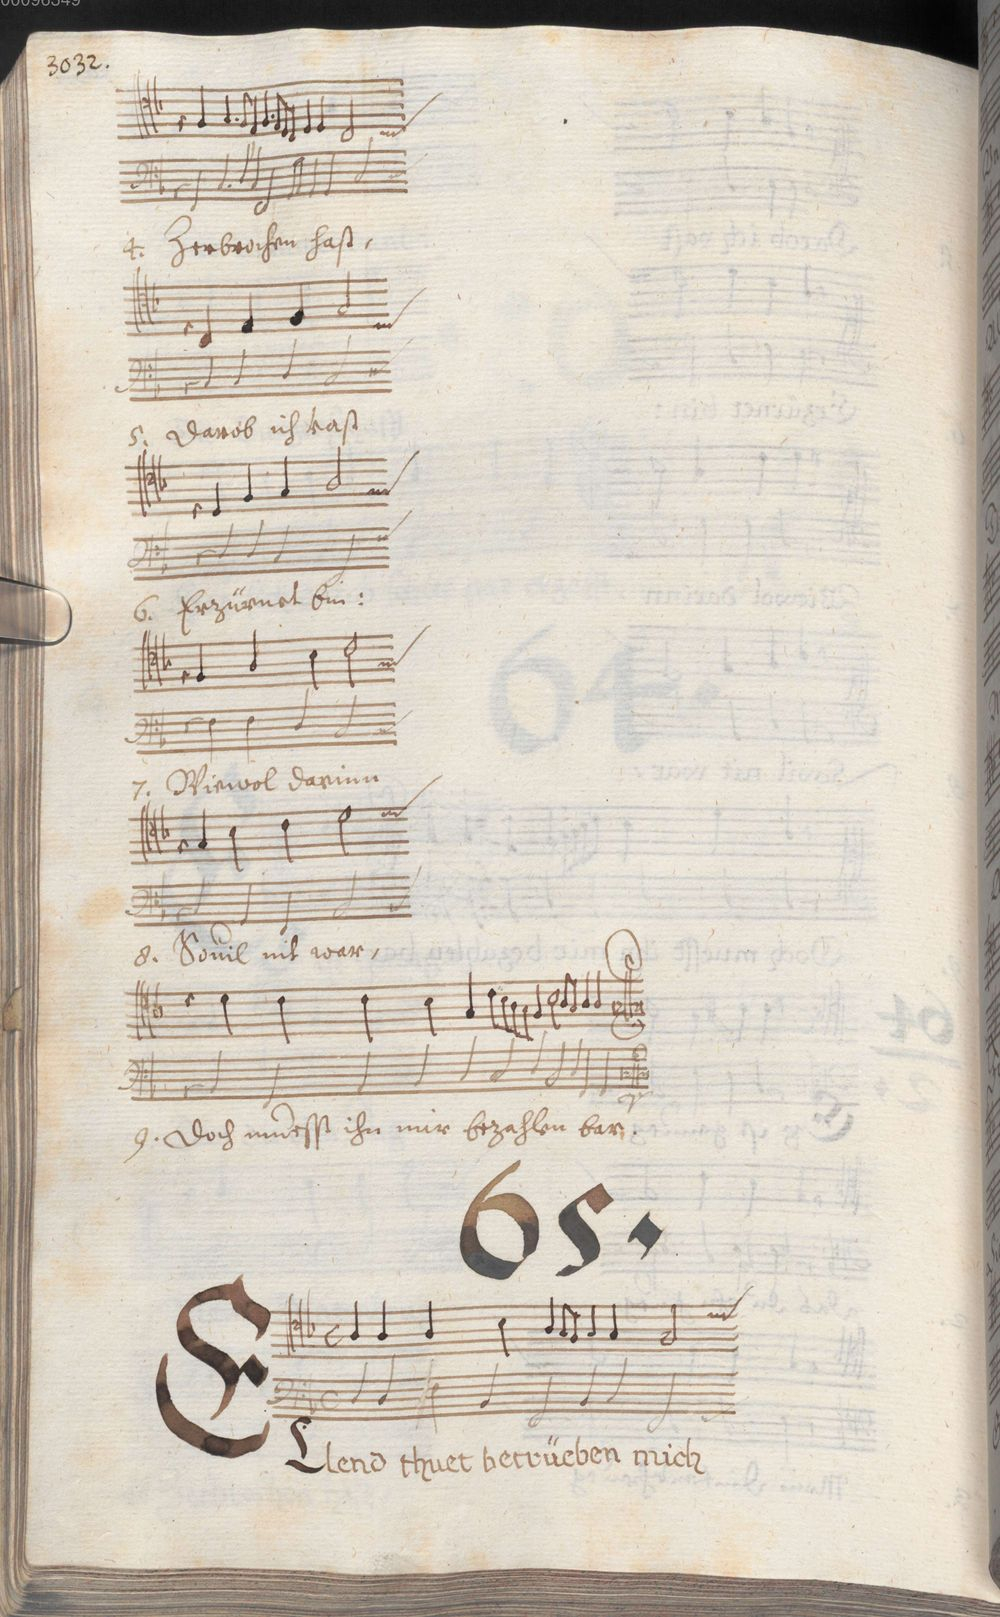 00096549
3032.
4. Zerbrochen hast,
5. Darob ich rast
6. Erzürnet bin:
7. Wiewol darinn
8. Souil nit war,
9. Doch muessst ihn mir bezahlen bar.
65.
Ellend thuet betrüeben mich